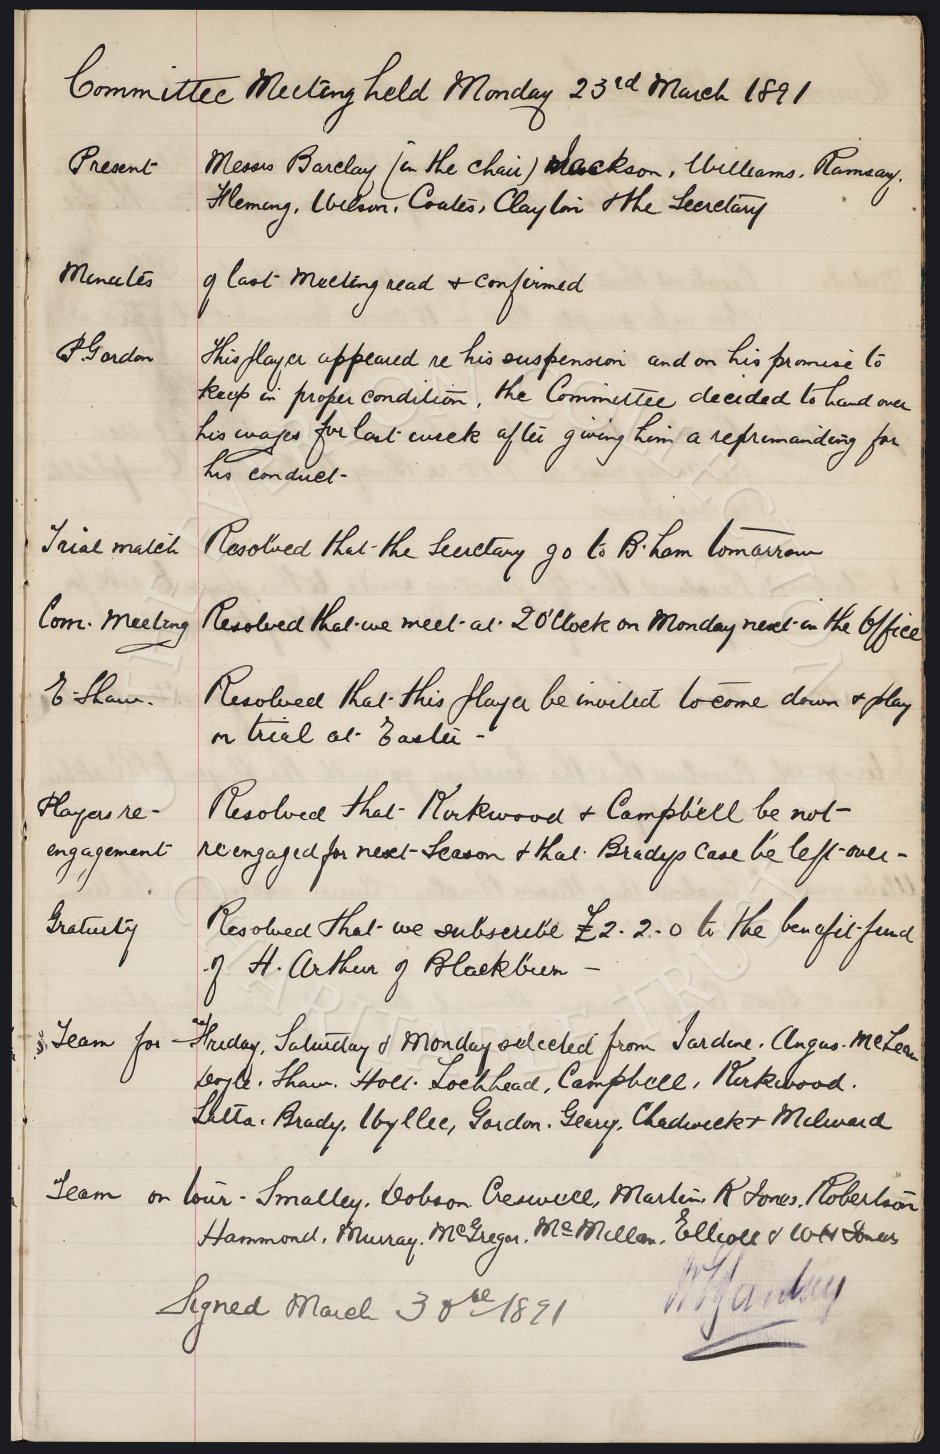 Committee Meeting held Monday 23rd March 1891
Present Messrs Barclay (in the chair) Jackson, Williams, Ramsay,
Fleming, Wilson, Coates, Clayton & the Secretary
Minutes of last Meeting read & confirmed
P. Gordon This player appeared re his suspension and on his promise to
keep in proper condition, the Committee decided to hand over
his wages for last week after giving him a reprimanding for
his conduct-
Trial match Resolved that the Secretary go to B.ham tomorrow
Com. Meeting Resolved that we meet at 2 O'Clock on Monday next in the Office
E. Shaw. Resolved that this player be invited to come down & play
on trial at Easter -
Players re- Resolved that Kirkwood & Campbell be not
engagement re engaged for next Season & that Bradys case be left over -
Gratuity Resolved that we subscribe £2-2-0 to the benefit fund
of H. Arthur of Blackburn -
Team for - Friday, Saturday & Monday selected from Jardine, Angus, McLean
Doyle, Shaw, Holt, Lochhead, Campbell, Kirkwood,
Latta, Brady, Wyllie, Gordon, Geary, Chadwick & Milward
Team on tour - Smalley, Dobson, Creswell, Martin, R Jones, Robertson
Hammond, Murray, McGregor, McMillan, Elliott & WH Jones
Signed March 30th 1891